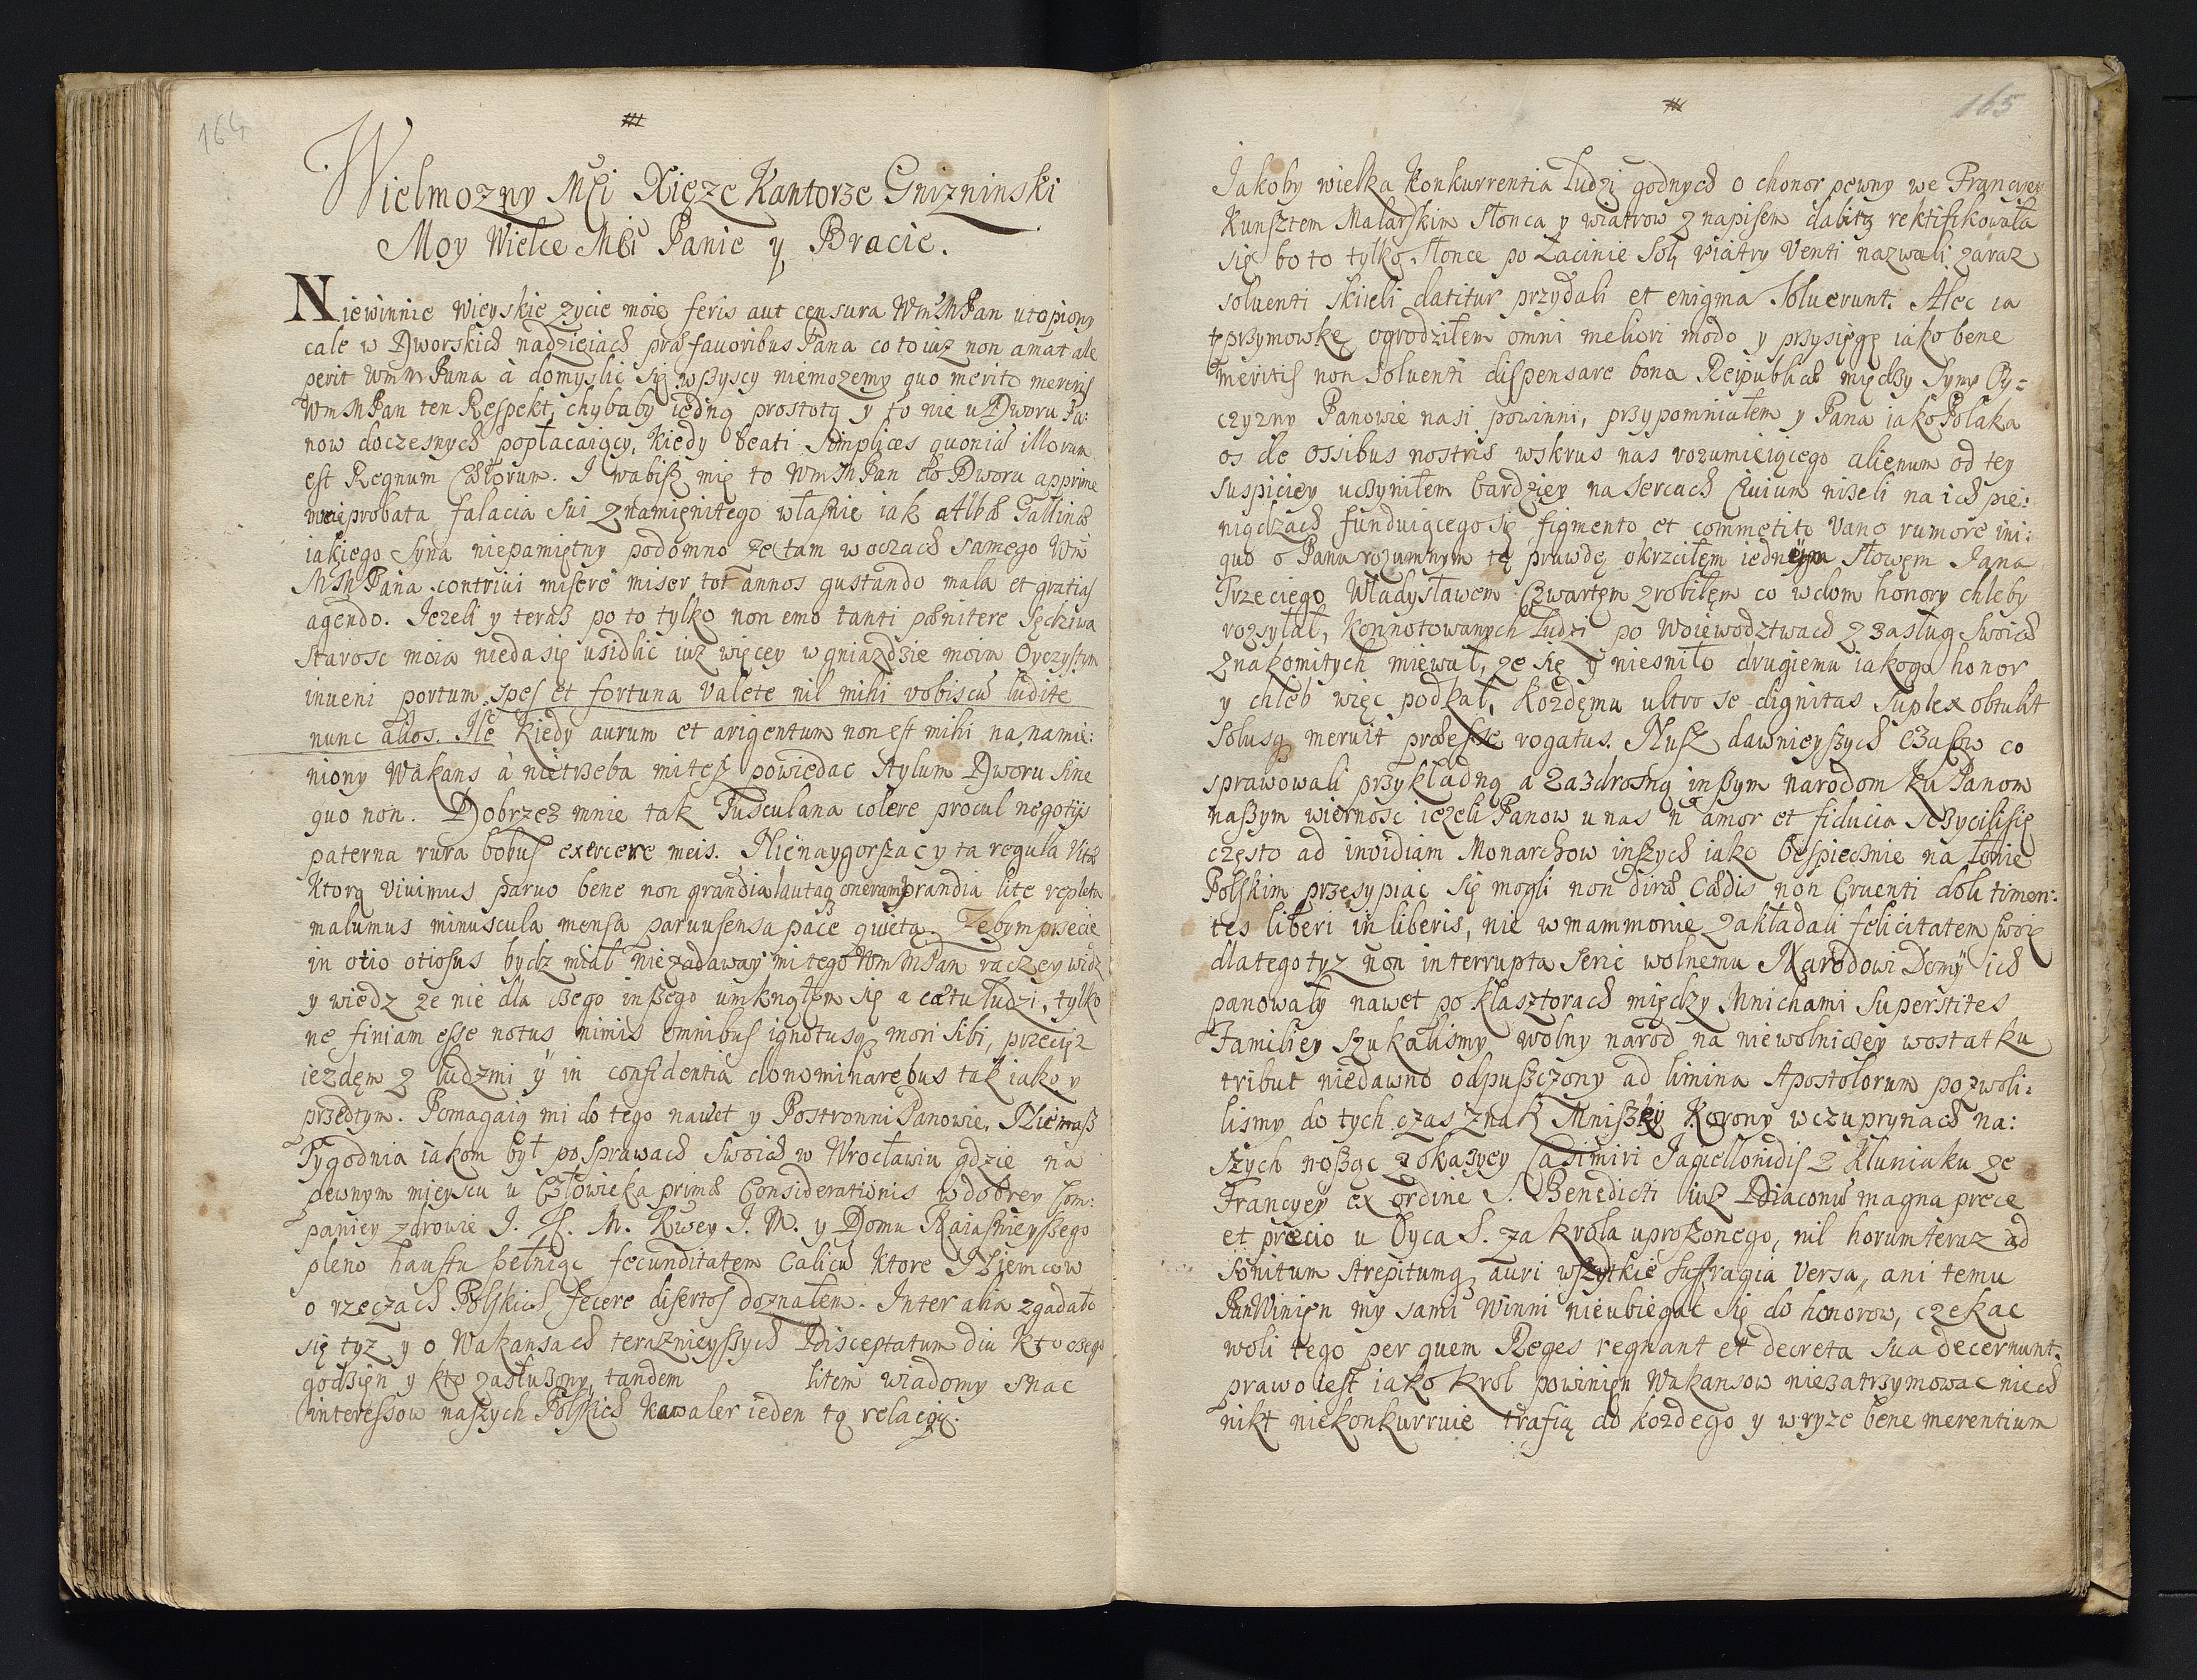 164
Wielmozny Msci Xięze Kantorze Gnizninski
Moy Wielce Msci Panie y Bracie.
Niewinnie wieyskie zycie moie feris aut censura WmMPan utopiony
cale w Dworskich nadzieiach præ fauoribus Pana co to iuz non amat ale
perit WmMPana à domyslic się wszyscy niemozemy quo merito mereris
WmMPan ten Respekt, chybaby iedną prostotą y to nie u Dworu Pa:
now doczesnych popłacaiący, kiedy beati simplices quoniã illorum
est Regnum Cœlorum. I wabisz mię to WmMPan do Dworu apprime
probata falacia sui znamięnitego własnie iak Albæ Gallinæ
iakiego Syna niepamiętny podomno ze tam w oczach samego Wm
MMPana contriui miserè miser tot annos gustando mala et gratias
agendo. Iezeli y teraz po to tylko non emo tanti pœnitere Sędziwa
starosc moia nieda się usidlic iuz więcey w gniazdzie moim Oyczystym
inueni portum spes et fortuna valete nil mihi vobiscũ ludite
nunc alios. Ile kiedy aurum et arigentum non est mihi na namie:
niony Wakans à nietrzeba mi tesz powiedac stylum Dworu sine
quo non. Dobrzez mnie tak Tusculana colere procul negotijs
paterna rura bobus exercere meis. Nienaygorszac y ta regula vitæ
ktorą viuimus paruo bene non grandia lautaq oneramq prandia lite repleta
malumus minuscula mensa paruusensa pace quieta. Zebym przecie
in otio otiosus bydz miał niezadaway mi tego WmMPan raczey widz
y wiedz ze nie dla czego inszego umknąłem się a cœtu ludzi, tylko
ne finiam esse notus nimis omnibus ignotusq mori sibi, przecięz
iezdęm z ludzmi ÿ in confidentia clonominarebus tak iako y
przedtym. Pomagaią mi do tego nawet y Postronni Panowie. Niemasz
Tygodnia iakom był po sprawach swoich w Wrocławiu gdzie na
pewnym mieyscu u Człowieka primæ Considerationis w dobrey Com:
paniey zdrowie I. K. M. Kwey I. M. y Domu Naiasnieyszego
pleno haustu pełniąc fecunditatem calicũ ktore Niemcow
o rzeczach Polskich fecere disertos doznałem. Inter alia zgadało
się tyz y o Wakansach teraznieyszych Disceptatum diu kto czego
godzięn y kto zasłuzony, tandem litem wiadomy snac
interessow naszych Polskich kawaler ieden tą relacyią.
165
Iakoby wielka Konkurrentia ludzi godnych o chonor pewny we Francyey
Kunsztem Malarskim słonca y wiatrow z napisem dabitq rektifikowała
się bo to tylko słonce po Łacinie Sol, wiatry Venti nazwali zaraz
soluenti skiieli datitur przydali et enigma soluerunt. Alec ia
przymowkę ogrodziłem omni meliori modo y przysięgę iako bene
meritis non soluenti dispensare bona Reipublicæ między Syny Oy=
czyzny Panowie nasi powinni, przypomniałem y Pana iako Polaka
os de ossibus nostris wskrus nas rozumieiącego alienum od tey
suspiciey uczyniłem bardziey na sercach Ciuium nizeli na ich pie:
niądzach funduiącego się figmento et commetito vano rumore ini:
quo o Panu rozumnym tę prawdę okrzciłęm iednym słowęm Iana
Trzeciego Władysławem Czwartęm zrobiłęm co w dom honory chleby
rozsyłał, Konnotowanych Ludzi po Woiewodztwach z zasług swoich
znakomitych miewał, ze się y niesniło drugiemu iakoga honor
y chleb więc podkał, kozdęmu ultro se dignitas suplex obtulit
solusq meruit præesse rogatus. Nusz dawnieyszych czasow co
sprawowali przykładną a zazdrosną inszym narodom ku Panom
naszym wiernosc iezeli Panow u nas ñ amor et fiducia sczycilisię
często ad inuidiam Monarchow inszych iako bespiecznie na łonie
Polskim przesypiac się mogli non diræ cædis non Cruenti doli timen:
tes liberi in liberis, nie w mammonie zakładali felicitatem swoię
dlategotyz non interrupta serie wolnemu Narodowi Domÿ ich
panowały nawet po klasztorach między Mnichami superstites
Familiey szukalismy wolny narod na niewolniczey wostatku
tribut niedawno odpuszczony ad limina Apostolorum pozwoli:
lismy do tych czas znak Mniszky Korony w czuprynach na:
szych nosząc z okazyey Casimiri Iagellonidis z Kluniaku ze
Francyey ex ordine S. Benedicti iusz Diaconũ magna prece
et precio u Oyca S. za krola uproszonego, nil horum teraz ad
sonitum strepitumq auri wszytkie suffragia versa, ani temu
Pan Winięn my sami winni nieubiegac się do honorow, czekac
woli tego per quem Reges regnant et decreta sua decernunt.
prawo iest iako krol powinięn Wakansow niezatrzymowac niech
nikt niekonkurruie trafią do kozdego y wryze bene merentium